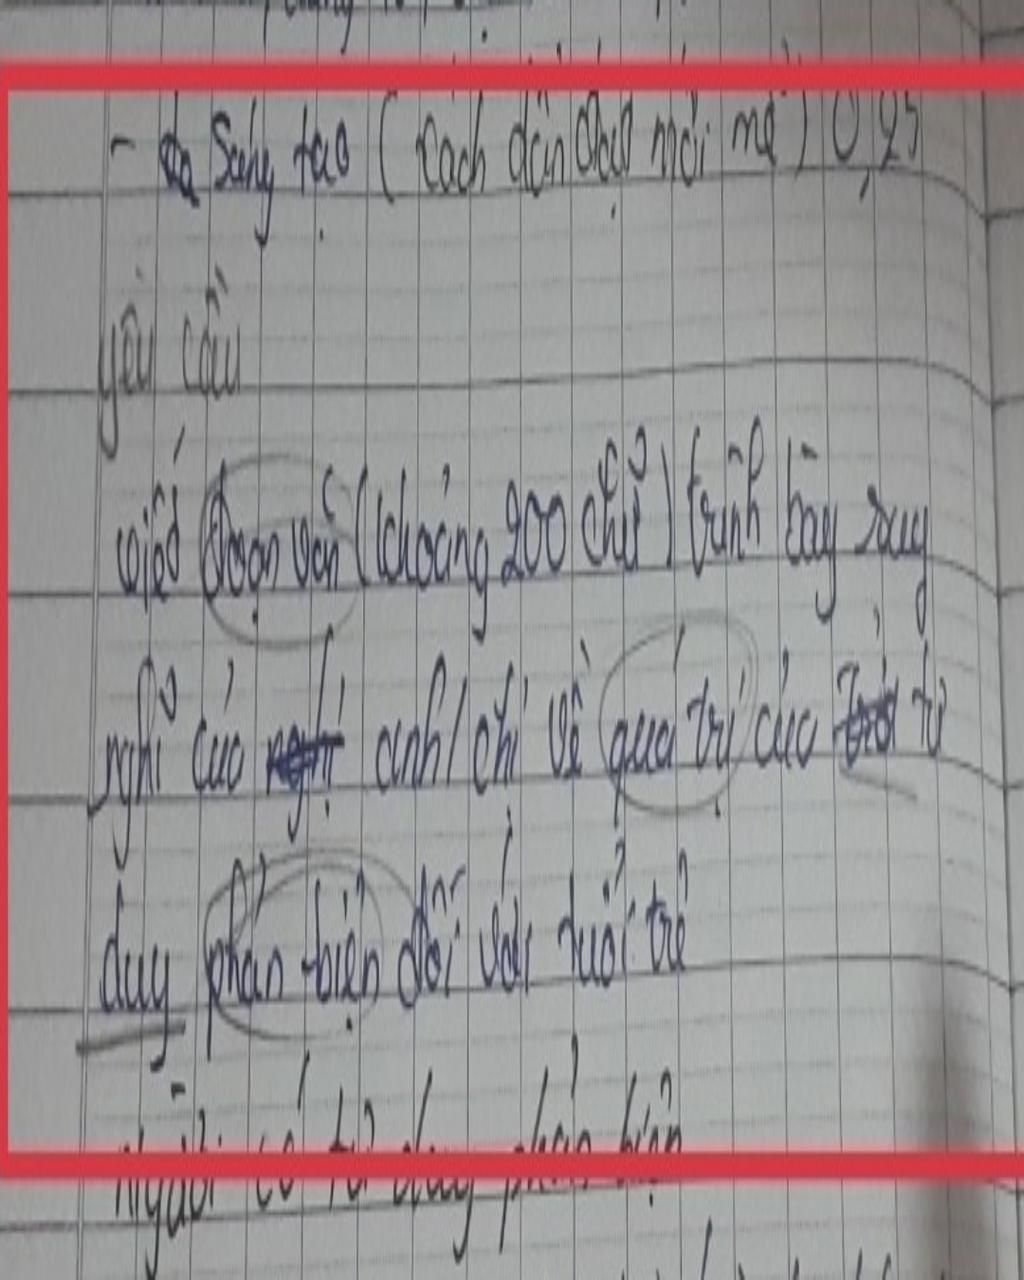 - Sáng tạo (Cách dẫn dắt mới mẻ) 0,25
yêu cầu
viết đoạn văn (khoảng 200 chữ) trình bày suy
nghĩ của anh/chị về quá trị của tư
duy phản biện đối với tuổi trẻ
Người có tư duy phản biện